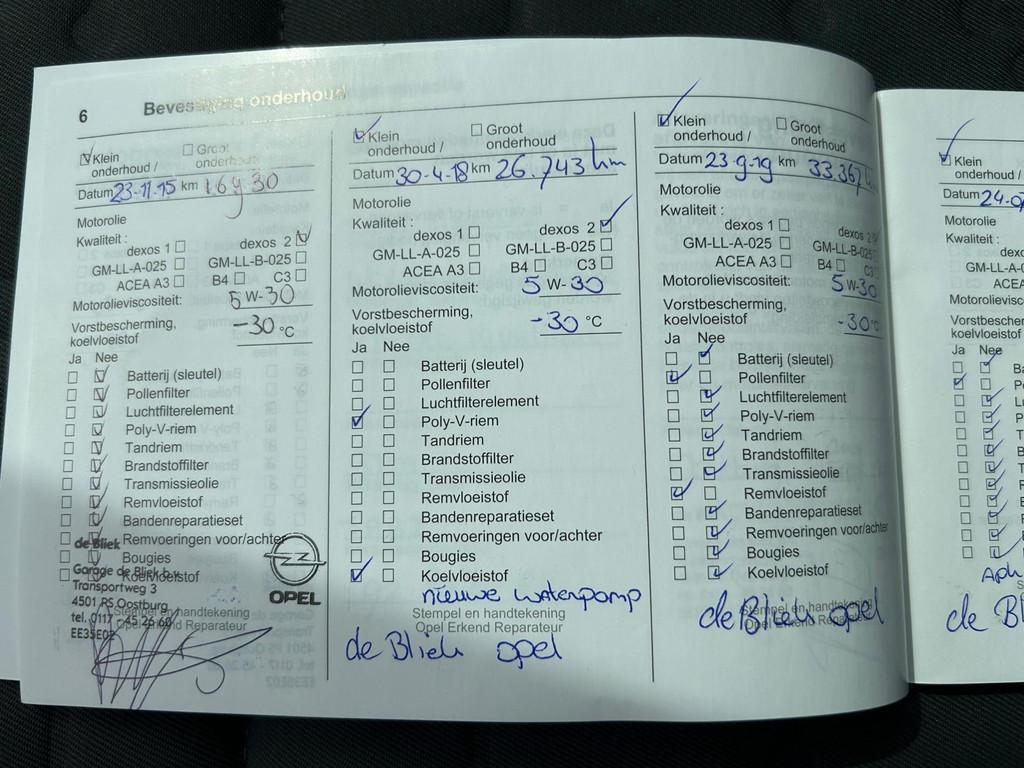 6 Bevestiging onderhoud
Klein
onderhoud /
Groot
onderhoud
Datum 23-11-15 km
Motorolie
Kwaliteit :
dexos 1 dexos 2
GM-LL-A-025 GM-LL-B-025
ACEA A3 B4 C3
Motorolieviscositeit: 5 W-30
Vorstbescherming,
koelvloeistof -30 °C
Ja Nee
Batterij (sleutel)
Pollenfilter
Luchtfilterelement
Poly-V-riem
Tandriem
Brandstoffilter
Transmissieolie
Remvloeistof
Bandenreparatieset
Remvoeringen voor/achter
Bougies
Koelvloeistof
de Bliek
Garage de Bliek b.v.
Transportweg 3
4501 PS Oostburg
tel. 0117 - 45 26 60
EE35E02
OPEL
Stempel en handtekening
Opel Erkend Reparateur
Klein
onderhoud /
Groot
onderhoud
Datum 30-4-18 km 26.743 km
Motorolie
Kwaliteit :
dexos 1 dexos 2
GM-LL-A-025 GM-LL-B-025
ACEA A3 B4 C3
Motorolieviscositeit: 5 W-30
Vorstbescherming,
koelvloeistof -30 °C
Ja Nee
Batterij (sleutel)
Pollenfilter
Luchtfilterelement
Poly-V-riem
Tandriem
Brandstoffilter
Transmissieolie
Remvloeistof
Bandenreparatieset
Remvoeringen voor/achter
Bougies
Koelvloeistof
nieuwe waterpomp
Stempel en handtekening
Opel Erkend Reparateur
de Bliek opel
Klein
onderhoud /
Groot
onderhoud
Datum 23-9-19 km 33.367 km
Motorolie
Kwaliteit :
dexos 1 dexos 2
GM-LL-A-025 GM-LL-B-025
ACEA A3 B4 C3
Motorolieviscositeit: 5 W-30
Vorstbescherming,
koelvloeistof -30 °C
Ja Nee
Batterij (sleutel)
Pollenfilter
Luchtfilterelement
Poly-V-riem
Tandriem
Brandstoffilter
Transmissieolie
Remvloeistof
Bandenreparatieset
Remvoeringen voor/achter
Bougies
Koelvloeistof
Stempel en handtekening
Opel Erkend Reparateur
de Bliek opel
Klein
onderhoud /
Datum 24-0
Motorolie
Kwaliteit :
GM-LL-A-0
ACEA
Motorolievisc
Vorstbescherm
koelvloeistof
Ja Nee
de Bl